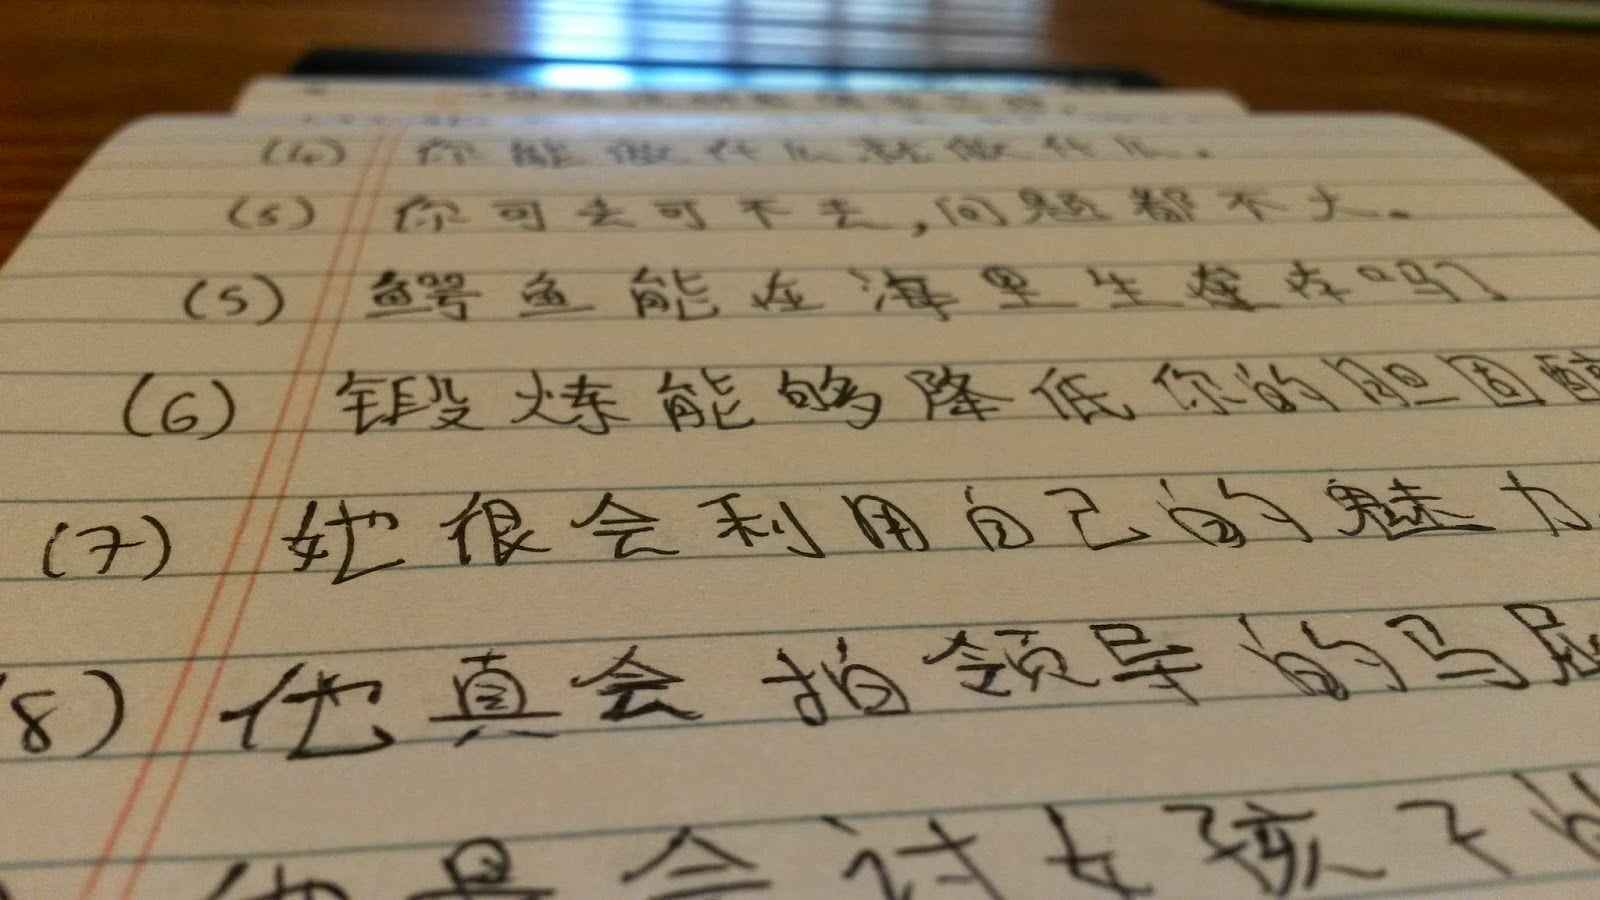 你能做什么就做什么。
(5) 你可去可不去,问题都不大。
(5) 鳄鱼能在海里生存吗
(6) 锻炼能够降低你的胆固醇
(7) 她很会利用自己的魅力
(8) 他真会拍领导的马屁
会讨女孩子的